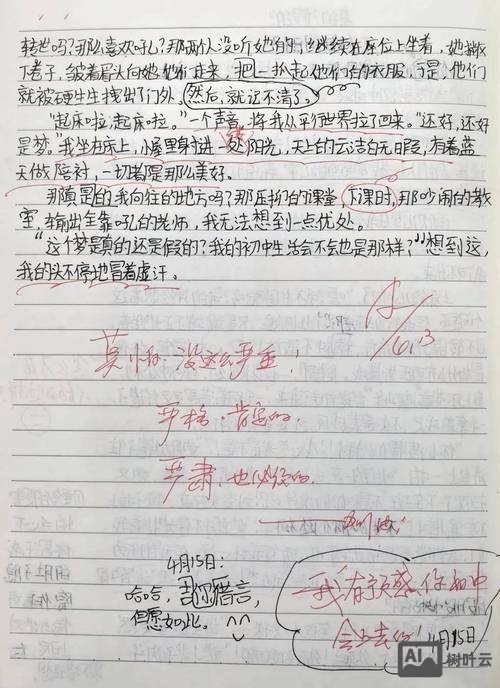 转世吗?那么喜欢吼!那两个人没听她的,继续在座位上坐着,她撇
下卷子,皱着眉头向她们走来,把一扒起他们的衣服,于是他们
就被硬生生拽出了门外。然后,就记不清了。
"起床啦,起床啦。"一个声音,将我从平行世界拉了回来。"还好,还好
是梦。"我坐在床上,小屋里射进一处阳光,天上的云洁白无瑕,有着蓝
天做陪衬,一切都是那么美好。
那真是的我向往的地方吗?那压抑的课堂,下课时,那吵闹的教
室,输出全靠吼的老师,我无法想到一点优处。
"这个梦是真的还是假的?我的初中生活会不会也是那样?"想到这,
我的头不停地冒着虚汗。
6.13
莫怕,没这么严重!
严格,肯定的,
严肃,也必须的。
4月15日:
哈哈,
但愿如此。^^
我有预感,你初中
会上去的!4月15日
AI
树叶云